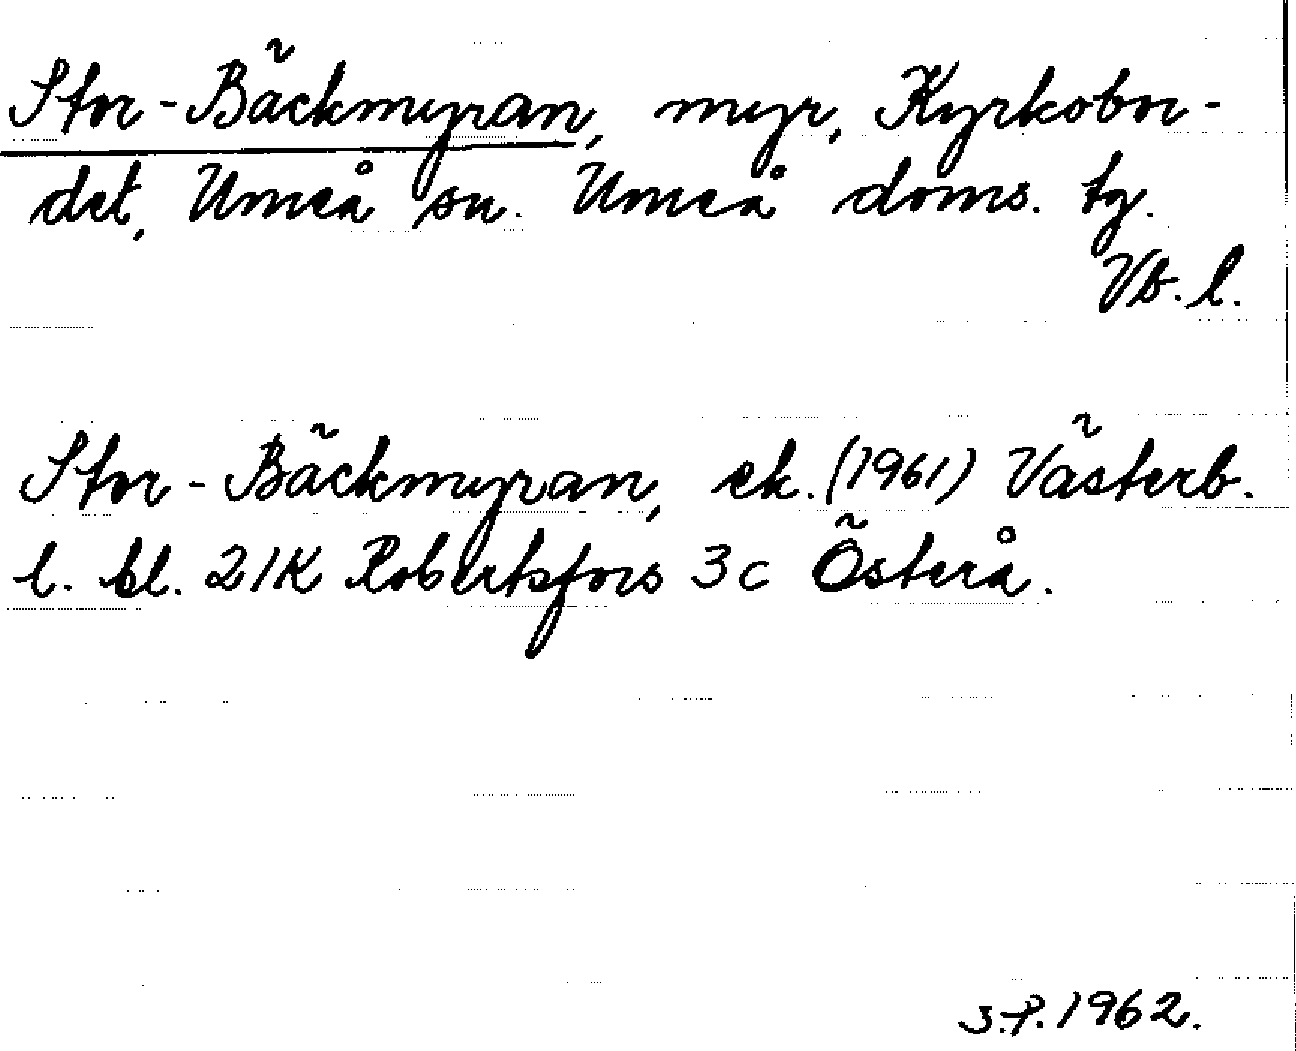 Stor-Bäckmyran, myr, Kyrkobor-
det, Umeå sn. Umeå doms. tg.
Vb. l.
Stor-Bäckmyran, ek. (1961) Västerb.
l. bl. 21K Robertsfors 3c Österå.
S.P. 1962.